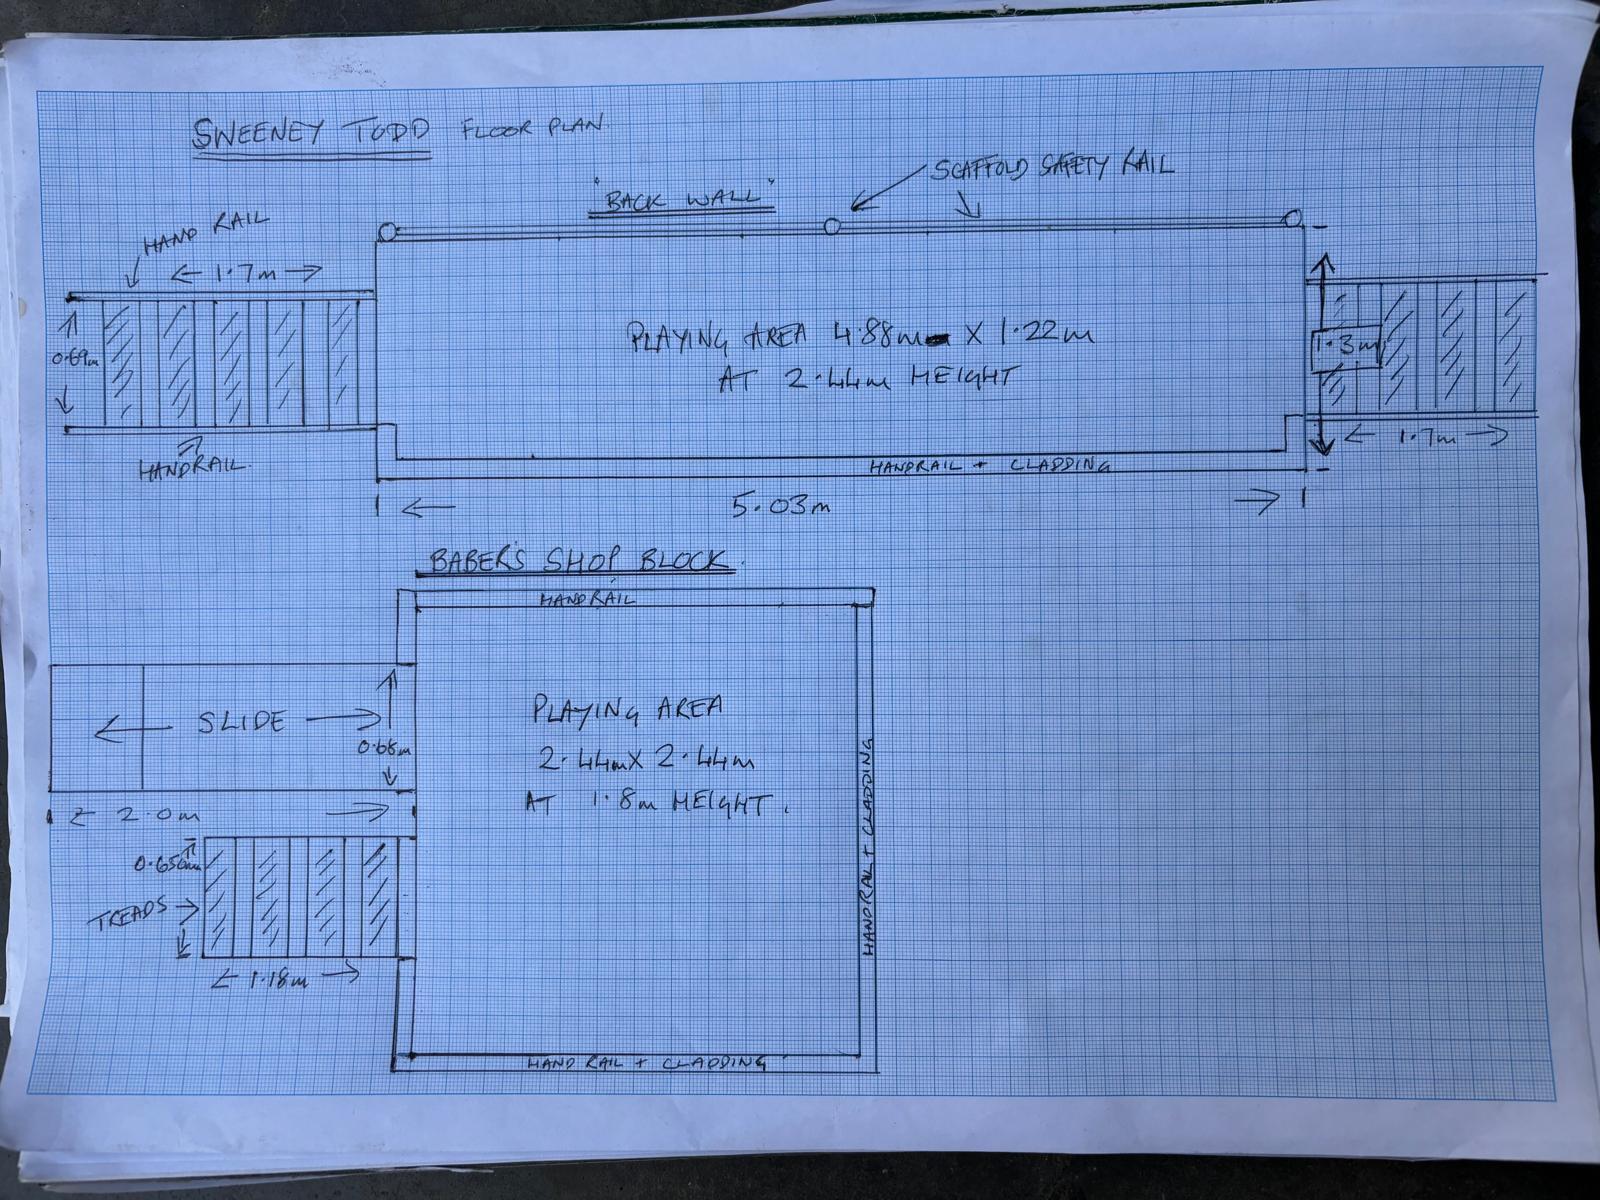 SWEENEY TODD FLOOR PLAN.
SCAFFOLD SAFETY RAIL
"BACK WALL"
HAND RAIL
1.7m
0.69m
PLAYING AREA 4.88m X 1.22m
AT 2.44m HEIGHT
1.3m
1.7m
HANDRAIL.
HANDRAIL + CLADDING
5.03m
BABER'S SHOP BLOCK.
HANDRAIL
SLIDE
0.68m
PLAYING AREA
2.44m X 2.44m
AT 1.8m HEIGHT.
2.0m
0.650mm
TREADS
1.18m
HANDRAIL + CLADDING
HAND RAIL + CLADDING